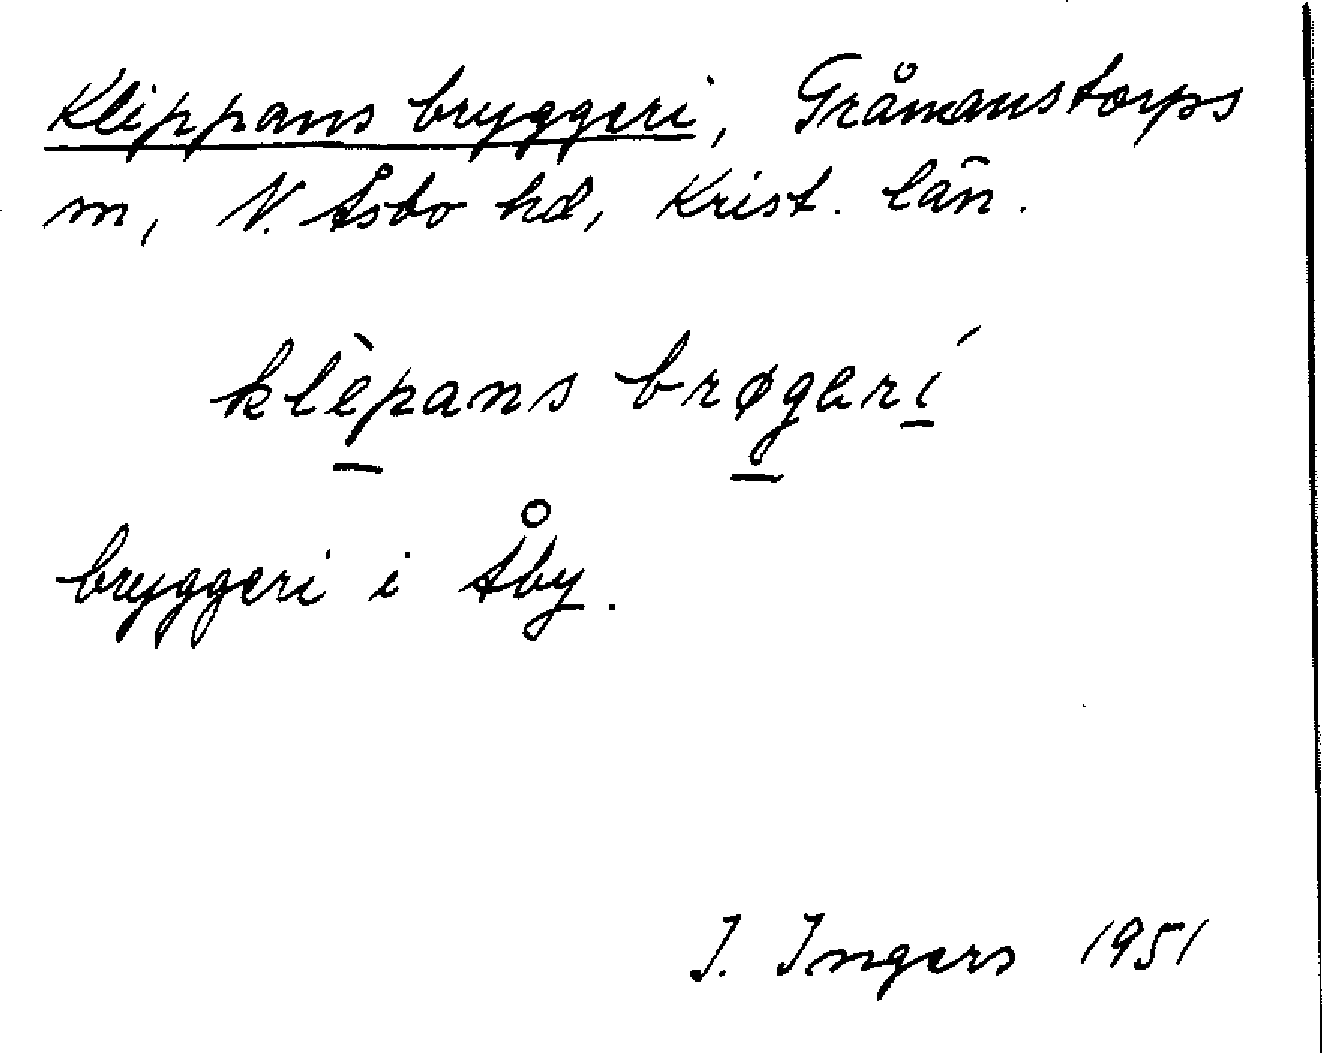 Klippans bryggeri, Gråmanstorps
sn, N. Åsbo hd, Krist. län.
klèpans brøgerí
bryggeri i Åby.
I. Ingers 1951